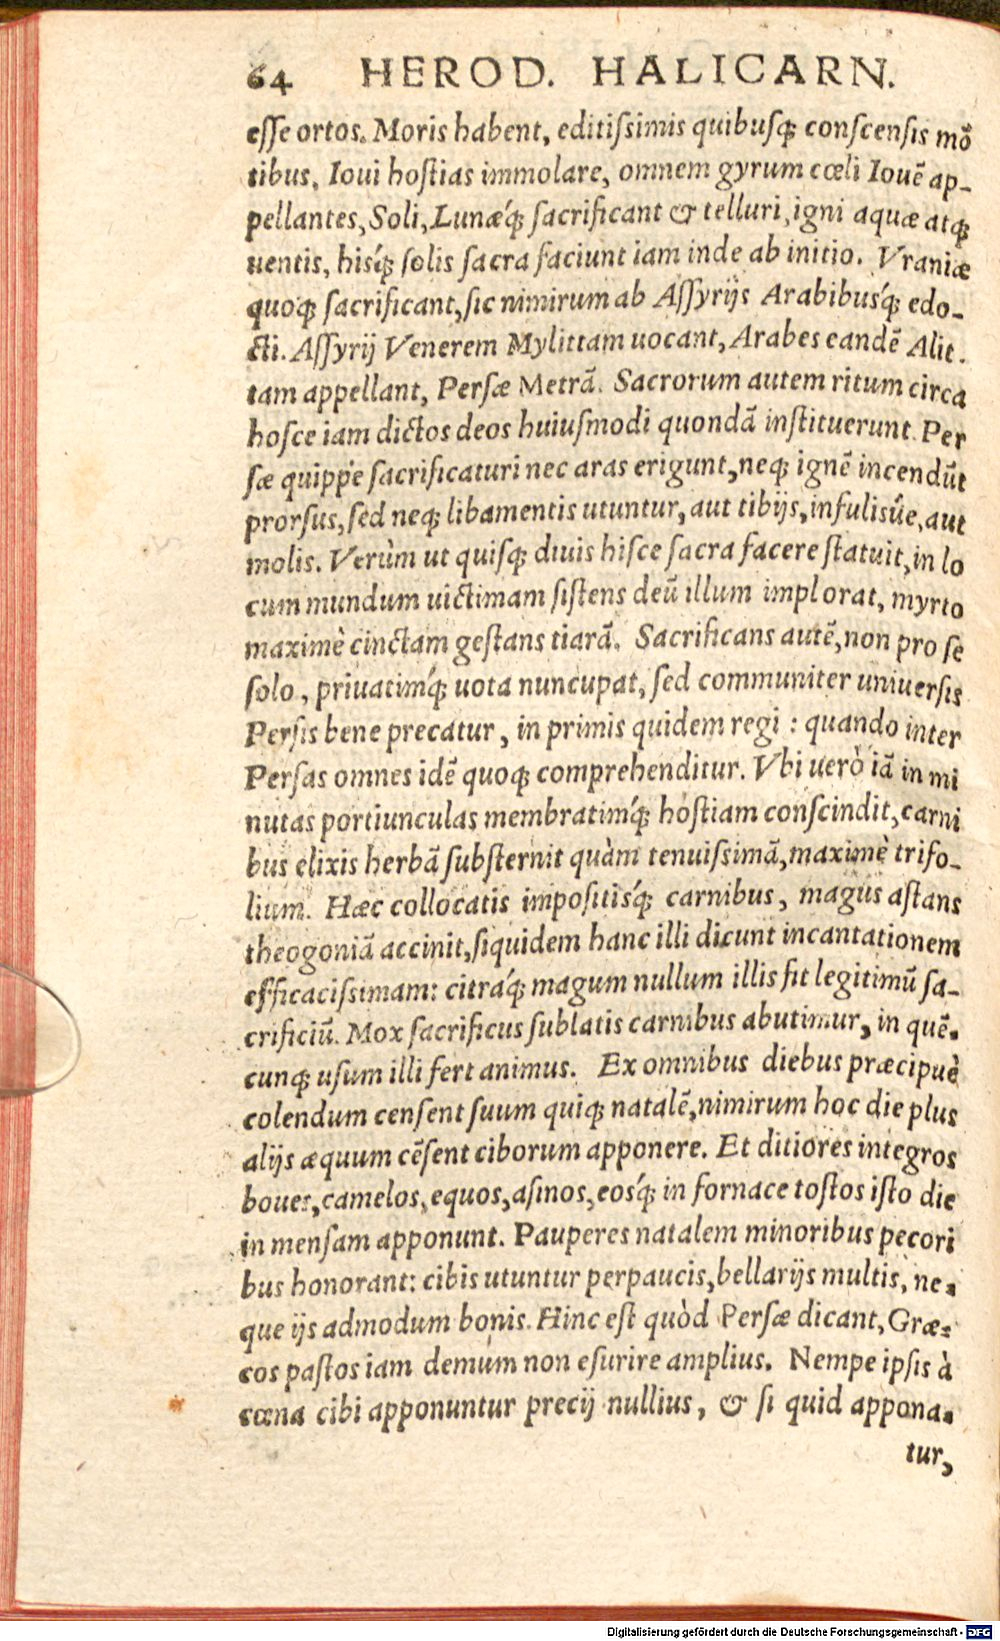 64 HEROD. HALICARN.
esse ortos. Moris habent, editissimis quibusq; conscensis mō
tibus, Ioui hostias immolare, omnem gyrum cœli Iouē ap-
pellantes, Soli, Lunæq́; sacrificant & telluri, igni aquæ atq;
uentis, hisq́; solis sacra faciunt iam inde ab initio. Vraniæ
quoq; sacrificant, sic nimirum ab Assyrijs Arabibusq́; edo-
cti. Assyrij Venerem Mylittam uocant, Arabes eandē Alit.
tam appellant, Persæ Metrā. Sacrorum autem ritum circa
hosce iam dictos deos huiusmodi quondā instituerunt. Per
sæ quippe sacrificaturi nec aras erigunt, neq; ignē incendūt
prorsus, sed neq; libamentis utuntur, aut tibijs, infulisûe, aut
molis. Verùm ut quisq; diuis hisce sacra facere statuit, in lo
cum mundum uictimam sistens deū illum implorat, myrto
maximè cinctam gestans tiarā. Sacrificans autē, non pro se
solo, priuatimq́; uota nuncupat, sed communiter uniuersis
Persis bene precatur, in primis quidem regi: quando inter
Persas omnes idē quoq; comprehenditur. Vbi uerò iā in mi
nutas portiunculas membratimq́; hostiam conscindit, carni
bus elixis herbā substernit quàm tenuissimā, maximè trifo-
lium. Hæc collocatis impositisq́; carnibus, magus astans
theogoniā accinit, siquidem hanc illi dicunt incantationem
efficacissimam: citráq; magum nullum illis fit legitimū sa-
crificiū. Mox sacrificus sublatis carnibus abutimur, in quē-
cunq; usum illi fert animus. Ex omnibus diebus præcipuè
colendum censent suum quiq; natalē, nimirum hoc die plus
alijs æquum cēsent ciborum apponere. Et ditiores integros
boues, camelos, equos, asinos, eosq́; in fornace tostos isto die
in mensam apponunt. Pauperes natalem minoribus pecori
bus honorant: cibis utuntur perpaucis, bellarijs multis, ne-
que ijs admodum bonis. Hinc est quòd Persæ dicant, Græ-
cos pastos iam demum non esurire amplius. Nempe ipsis à
cœna cibi apponuntur precij nullius, & si quid appona-
tur,
Digitalisierung gefördert durch die Deutsche Forschungsgemeinschaft - DFG